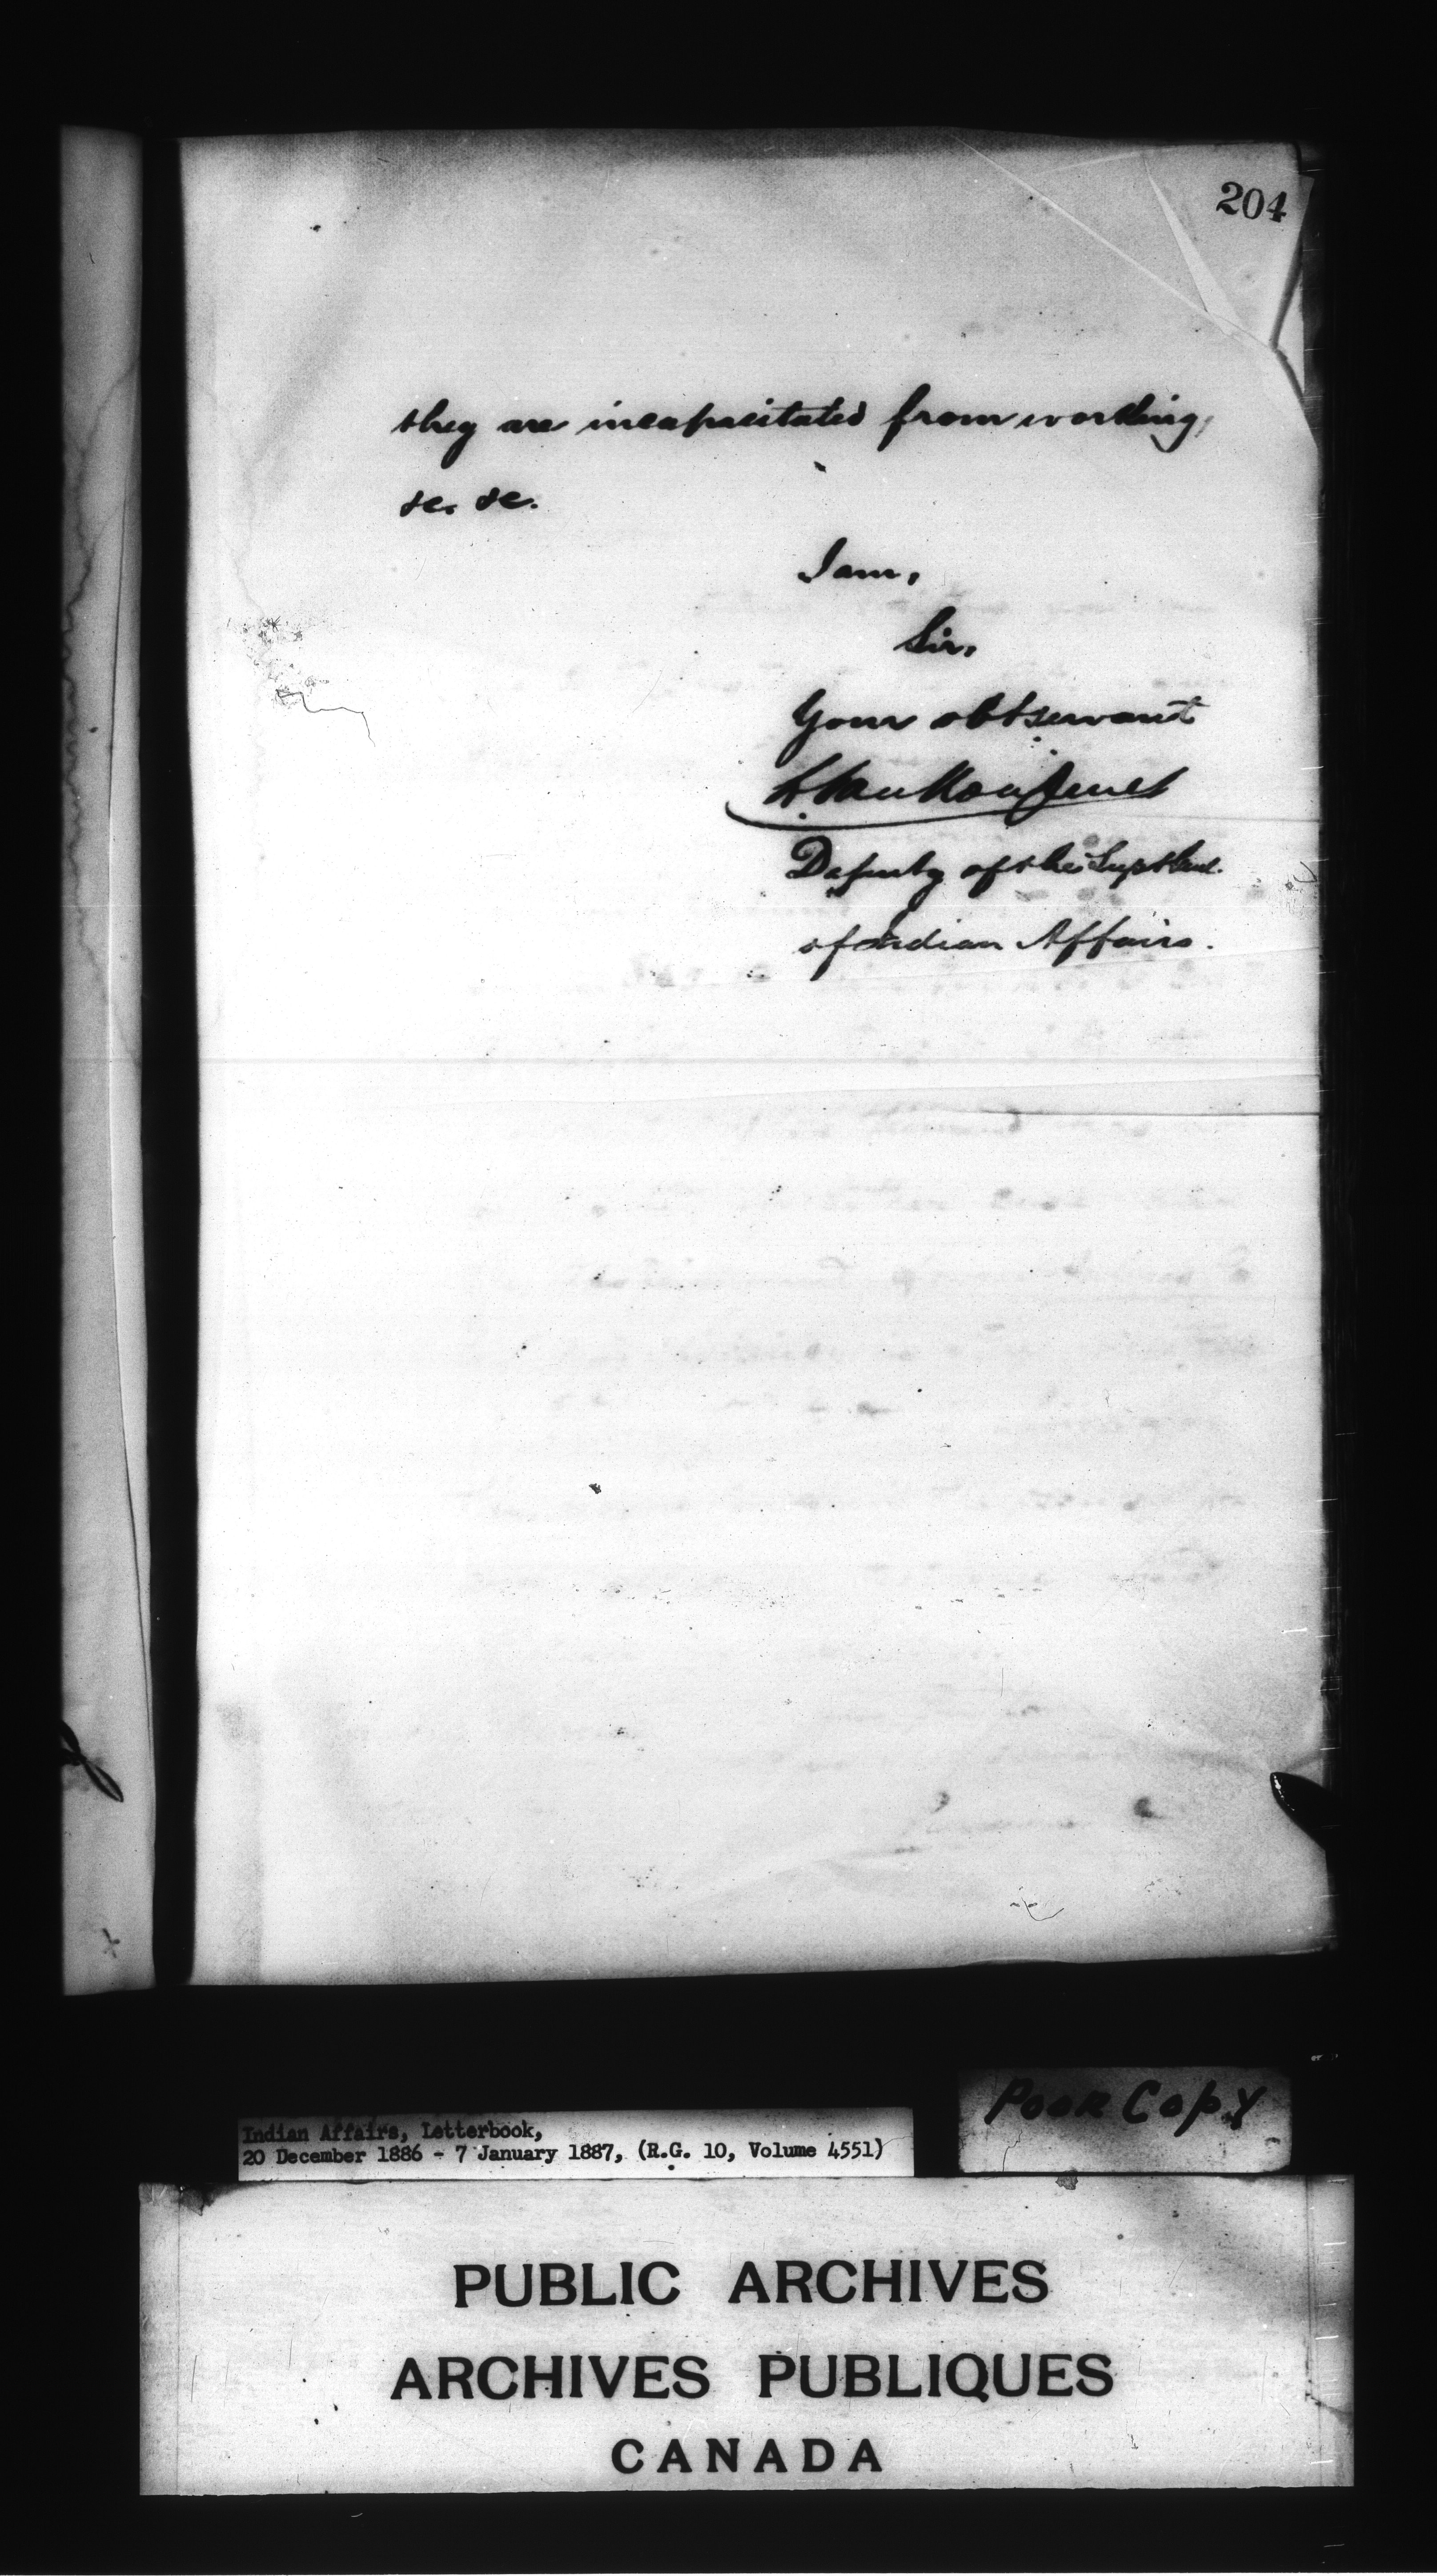 204
they are incapacitated from working,
&c. &c.
I am,
Sir,
Your obt servant
L. Vankoughnet
Deputy of the Supt Genl.
of Indian Affairs.
Poor Copy
Indian Affairs, Letterbook,
20 December 1886 - 7 January 1887, (R.G. 10, Volume 4551)
PUBLIC ARCHIVES
ARCHIVES PUBLIQUES
CANADA